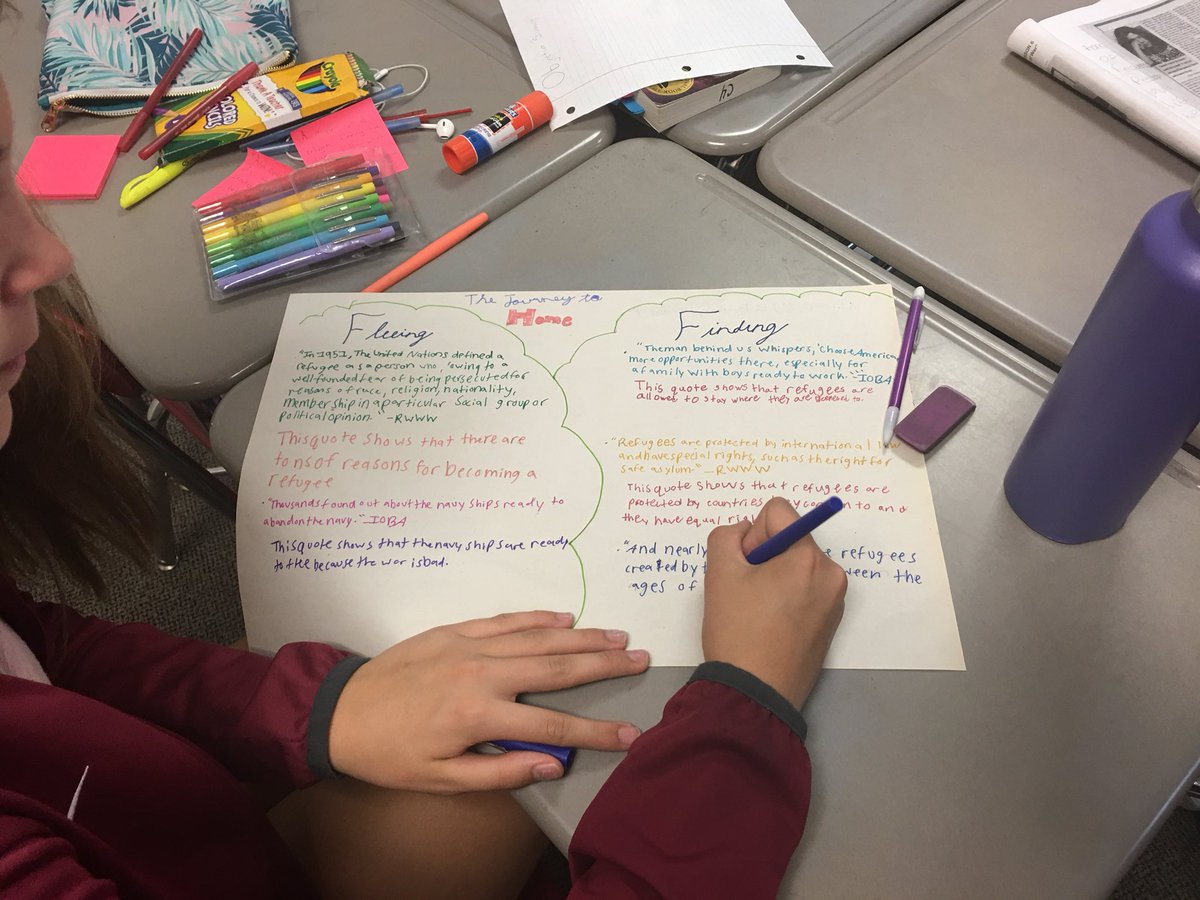 The Journey to
Home
Fleeing
"In 1951, The United Nations defined a
refugee as a person who, 'owing to a
well founded fear of being persecuted for
reasons of race, religion, nationality,
membership in a particular social group or
political opinion." -RWWW
This quote shows that there are
tons of reasons for becoming a
refugee
• "Thousands found out about the navy ships ready to
abandon the navy." -IOBA
This quote shows that the navy ships are ready
to flee because the war is bad.
Finding
• "The man behind us whispers, 'Choose America
more opportunities there, especially for
a family with boys ready to work.'" -IOBA
This quote shows that refugees are
allowed to stay where they are to.
• "Refugees are protected by international law
and have special rights, such as the right for
safe asylum" -RWWW
This quote shows that refugees are
protected by countries to and
they have equal
• "And nearly refugees
created by between the
ages of
Crayola